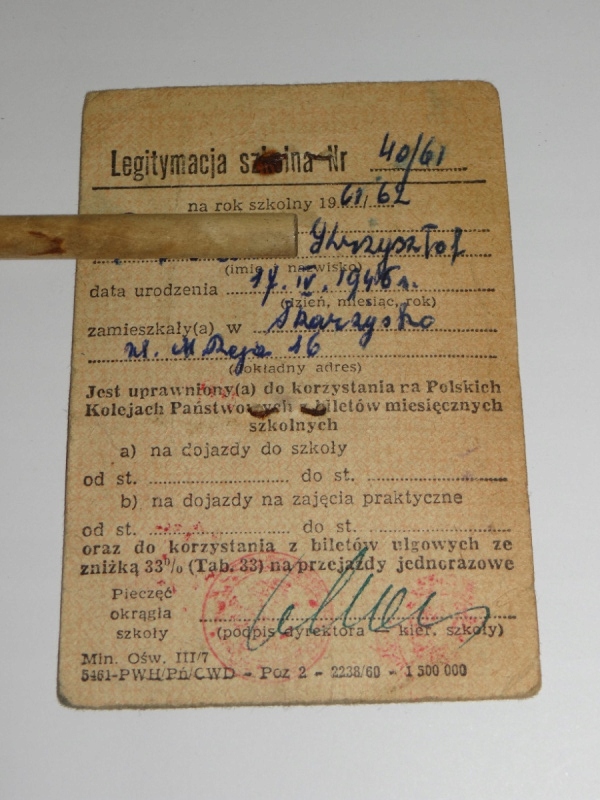 Legitymacja szkolna Nr 40/61
na rok szkolny 1961/62
Krzysztof
(imię i nazwisko)
data urodzenia 17.IV.1946 r.
(dzień, miesiąc, rok)
zamieszkały(a) w Skarżysko
ul. M Reja 16
(dokładny adres)
Jest uprawniony(a) do korzystania na Polskich
Kolejach Państwowych z biletów miesięcznych
szkolnych
a) na dojazdy do szkoły
od st. do st.
b) na dojazdy na zajęcia praktyczne
od st. do st.
oraz do korzystania z biletów ulgowych ze
zniżką 33% (Tab. 33) na przejazdy jednorazowe
Pieczęć
okrągła
szkoły
(podpis dyrektora — kier. szkoły)
Min. Ośw. III/7
5461-PWH/Pń/CWD - Poz 2 - 2238/60 - 1 500 000